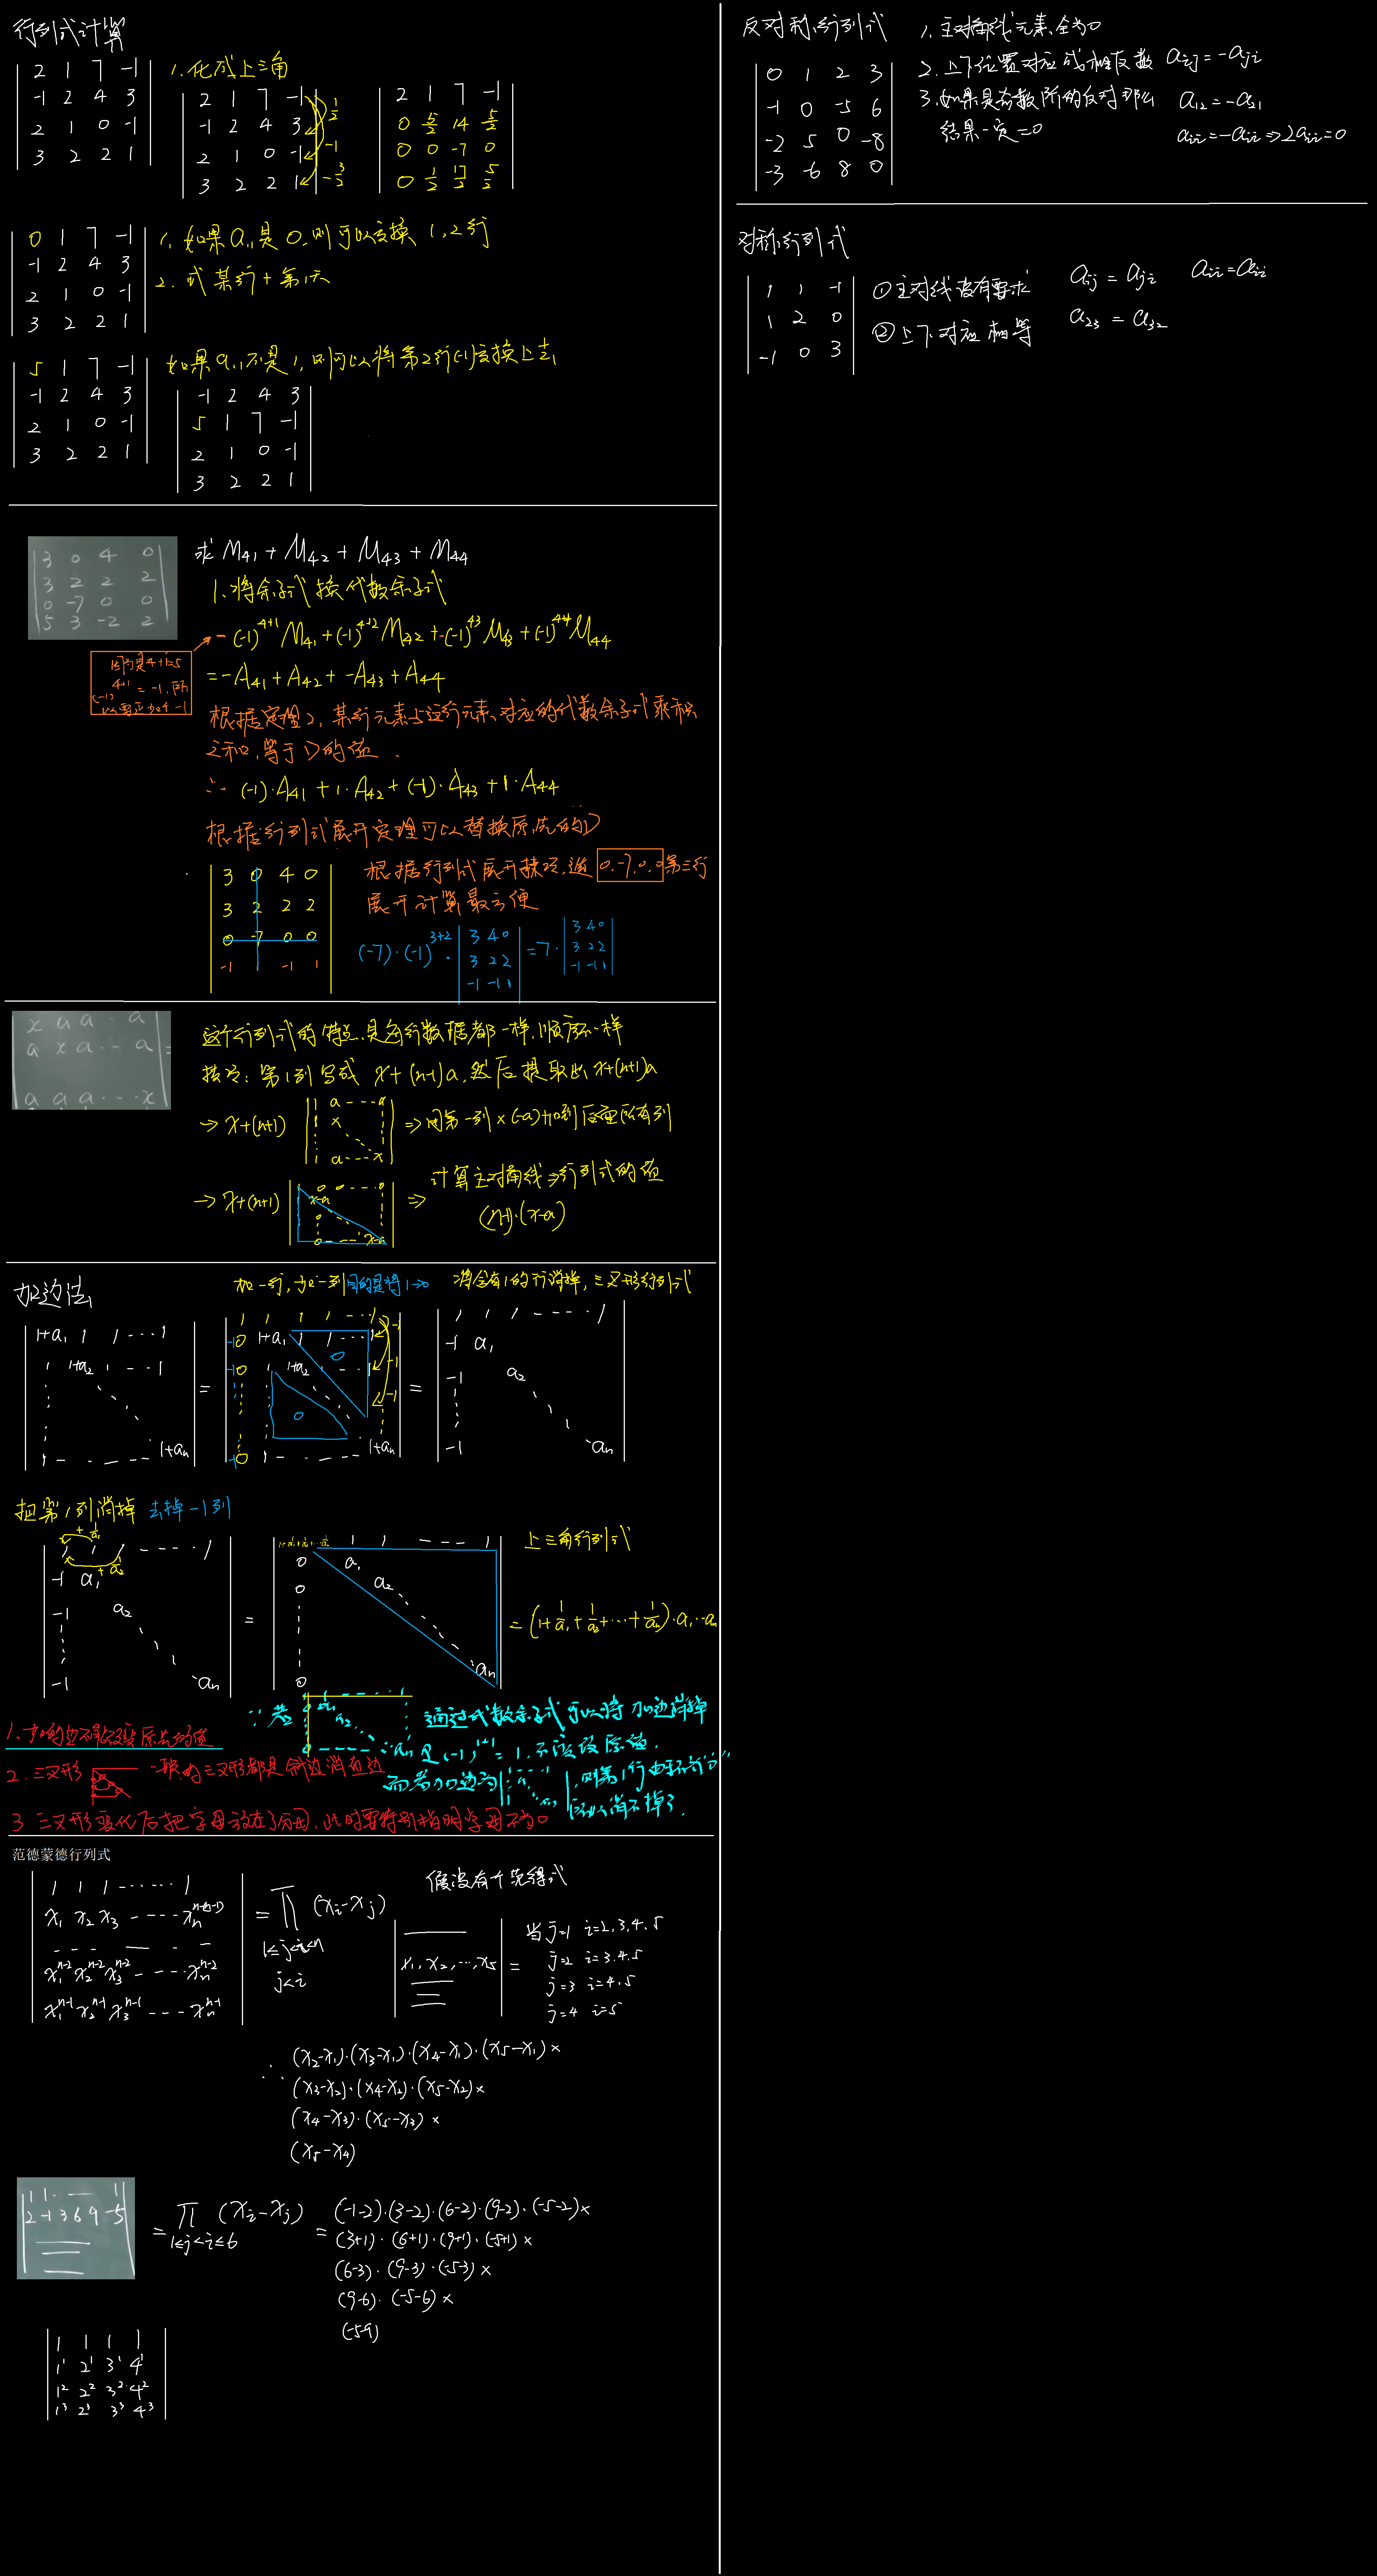 行列式计算
2 1 7 -1
-1 2 4 3
2 1 0 -1
3 2 2 1
1. 化成上三角
2 1 7 -1
-1 2 4 3
2 1 0 -1
3 2 2 1
1/2
-1
-3/2
2 1 7 -1
0 5/2 14 5/2
0 0 -7 0
0 1/2 17/2 5/2
0 1 7 -1
-1 2 4 3
2 1 0 -1
3 2 2 1
1. 如果a11是0,则可以交换1,2行
2. 或某行+第1行
5 1 7 -1
-1 2 4 3
2 1 0 -1
3 2 2 1
如果a11不是1,则可以将第2行(-1)交换上去
-1 2 4 3
5 1 7 -1
2 1 0 -1
3 2 2 1
3 0 4 0
3 2 2 2
0 -7 0 0
5 3 -2 2
求 M41 + M42 + M43 + M44
1. 将余子式换代数余子式
-(-1)^4+1 M41 + (-1)^4+2 M42 + -(-1)^43 M43 + (-1)^4+4 M44
因为是4+1=5
(-1)^4+1 = -1, 所
以需要加个-1
= -A41 + A42 + -A43 + A44
根据定理2, 某行元素与这行元素对应的代数余子式乘积
之和, 等于D的值.
∴ (-1)·A41 + 1·A42 + (-1)·A43 + 1·A44
根据行列式展开定理可以替换原先的D
3 0 4 0
3 2 2 2
0 -7 0 0
-1 1 -1 1
根据行列式展开技巧, 选 0,-7,0,0 第三行
展开计算最方便
(-7)·(-1)^3+2 ·
3 4 0
3 2 2
-1 -1 1
= 7 ·
3 4 0
3 2 2
-1 -1 1
x a a ·· a
a x a ·· a =
a a a ··· x
这个行列式的特点是每行数据都一样,顺序不一样
技巧: 第1列写成 x+(n-1)a, 然后提取出 x+(n+1)a
→ x+(n+1)
1 a ---- a
x
1 a --- x
⇒ 用第一列×(-a)加到后面所有列
→ x+(n+1)
0 0 ---- 0
x-a
0
0 ---- x-a
⇒
计算主对角线⇒行列式的值
(n+1)·(x-a)
加边法
加一行,加一列 目的是将1→0
将含有1的行消掉, 三叉形行列式
1+a1 1 1 ··· 1
1 1+a2 1 -- 1
1 - - - - 1+an
=
1 1 1 1 --- 1
0 1+a1 1 1 ··· 1
0 1 1+a2
0 1 - - - - 1+an
=
1 1 1 ----- 1
-1 a1
-1 a2
-1 an
把第1列消掉 去掉-1列
+ 1/a1
1 1 1 ---- 1
+ 1/a2
-1 a1
-1 a2
-1 an
=
1 1 ---- 1
0 a1
0 a2
0 an
上三角行列式
= (1 + 1/a1 + 1/a2 + ··· + 1/an)·a1··an
1. 加的边不能改变原先的值
∵ 若
通过代数余子式可以将加边消掉
2. 三叉形 一般的三叉形都是斜边消直边
3 三叉形变化后把字母放在了分母, 此时要特别指明字母不为0
范德蒙德行列式
1 1 1 ------ 1
x1 x2 x3 ---- xn^n-(n-1)
x1^n-2 x2^n-2 x3^n-2 ---- xn^n-2
x1^n-1 x2^n-1 x3^n-1 ---- xn^n-1
= ∏ (xi - xj)
1≤j<i≤n
j<i
假设有个范得式
x1, x2, ..., x5
=
当 j=1 i=2,3,4,5
j=2 i=3,4,5
j=3 i=4,5
j=4 i=5
∴ (x2-x1)·(x3-x1)·(x4-x1)·(x5-x1)×
(x3-x2)·(x4-x2)·(x5-x2)×
(x4-x3)·(x5-x3)×
(x5-x4)
1 1 · — 1
2 -1 3 6 9 -5
= ∏ (xi - xj)
1≤j<i≤6
= (-1-2)·(3-2)·(6-2)·(9-2)·(-5-2)×
(3+1)·(6+1)·(9+1)·(-5+1)×
(6-3)·(9-3)·(-5-3)×
(9-6)·(-5-6)×
(-5-9)
1 1 1 1
1^1 2^1 3^1 4^1
1^2 2^2 3^2 4^2
1^3 2^3 3^3 4^3
反对称行列式
0 1 2 3
-1 0 -5 6
-2 5 0 -8
-3 -6 8 0
1. 主对角线元素全为0
2. 上下位置对应成相反数 aij = -aji
3. 如果是奇数阶的反对那么
结果一定=0
a12 = -a21
aii = -aii ⇒ 2aii = 0
对称行列式
1 1 -1
1 2 0
-1 0 3
①主对线没有要求 aij = aji aii = aii
②上下对应相等 a23 = a32